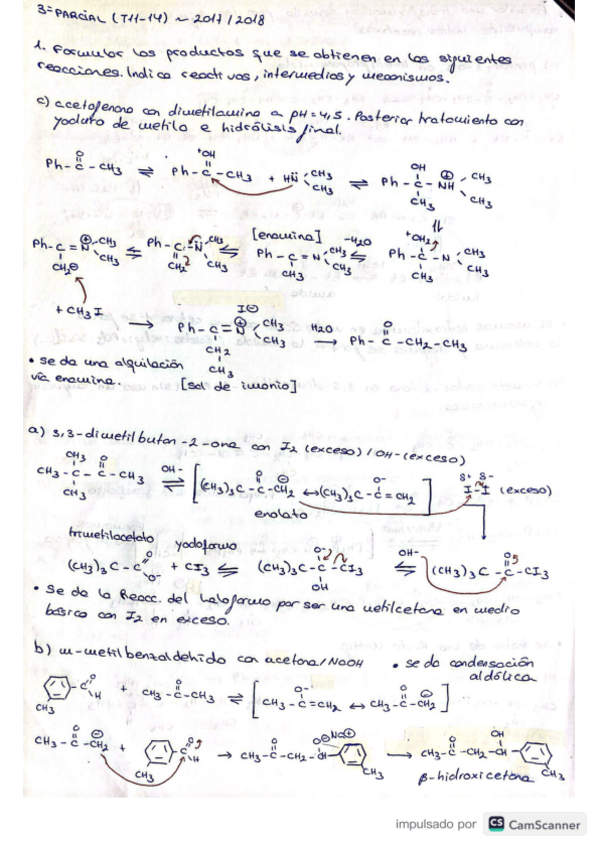 3º PARCIAL (T11-14) ~ 2017/2018
1. Formular los productos que se obtienen en las siguientes
reacciones. Indica reactivos, intermedios y mecanismos.
c) acetofenona con dimetilamina a pH = 4,5. Posterior tratamiento con
yoduro de metilo e hidrólisis final.
Ph - C - CH3 ⇌ Ph - C - CH3 + HN CH3 CH3 ⇌ Ph - C - NH CH3 CH3
O +OH OH ⊕
CH3
[enamina] -H2O
Ph - C = N CH3 CH3 ⇌ Ph - C - N CH3 CH3 ⇌ Ph - C = N CH3 CH3 ⇌ Ph - C - N CH3 CH3
CH2⊖ CH2 CH3 +OH2 CH3
+ CH3I → Ph - C = N CH3 CH3 H2O → Ph - C - CH2 - CH3
I⊖ ⊕ O
CH2
CH3
• se da una alquilación
vía enamina. [sal de imonio]
a) 3,3-dimetilbutan-2-ona con I2 (exceso) / OH- (exceso)
CH3 O
CH3 - C - C - CH3 OH- ⇌ [(CH3)3C - C - CH2 ↔ (CH3)3C - C = CH2] I - I (exceso)
CH3 O ⊖ O- δ+ δ-
enolato
trimetilacetato yodoformo
(CH3)3C - C O O- + CI3 ⇌ (CH3)3C - C - CI3 OH- ⇌ (CH3)3C - C - CI3
O- OH O
• Se da la Reacc. del haloformo por ser una metilcetona en medio
básico con I2 en exceso.
b) m-metilbenzaldehido con acetona/NaOH • se da condensación
aldólica
C O H + CH3 - C - CH3 ⇌ [CH3 - C = CH2 ↔ CH3 - C - CH2]
CH3 O O- O ⊖
CH3 - C - CH2 + C O H → CH3 - C - CH2 - CH → CH3 - C - CH2 - CH
O ⊖ CH3 O O⊖Na⊕ CH3 O OH CH3
β-hidroxicetona
impulsado por CS CamScanner